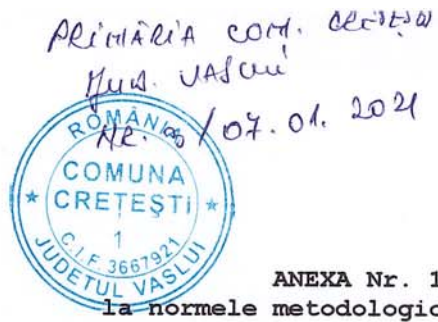 PRIMĂRIA COM.
Jud. VASLUI
NR. / 07.01.2021
ROMÂNIA
COMUNA
CREȚEȘTI
1
C.I.F. 3667921
JUDEȚUL VASLUI
ANEXA Nr. 1
la normele metodologic